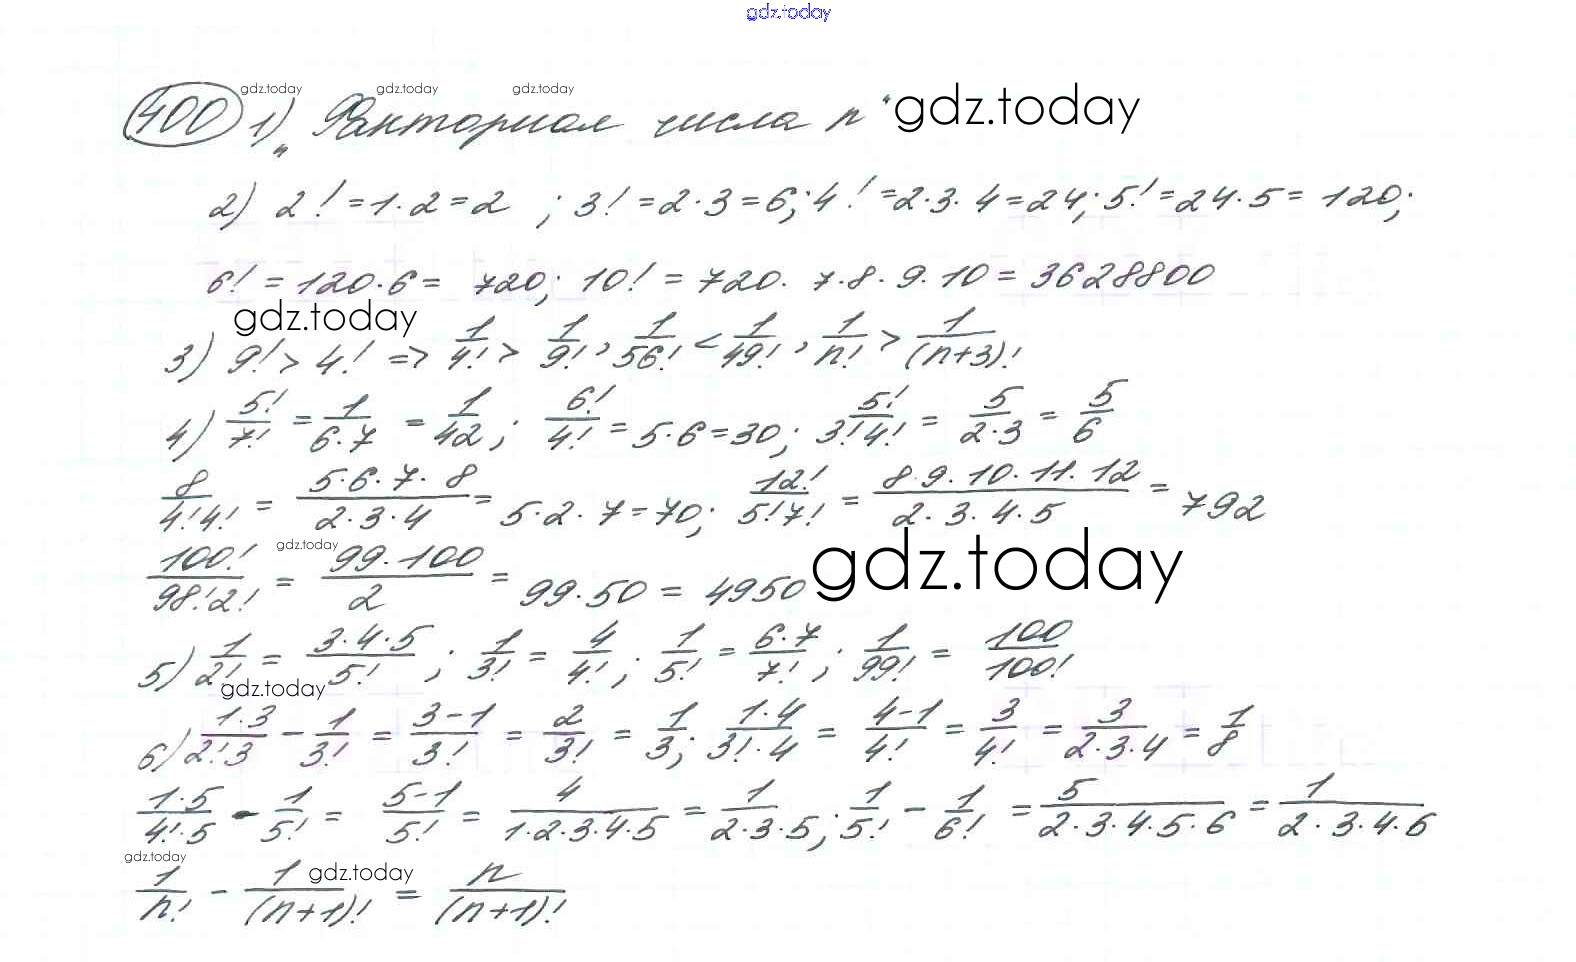 gdz.today
gdz.today gdz.today gdz.today
400 1) „Факториал числа n“ gdz.today
2) 2! = 1·2 = 2 ; 3! = 2·3 = 6; 4! = 2·3·4 = 24; 5! = 24·5 = 120;
6! = 120·6 = 720; 10! = 720·7·8·9·10 = 3628800
gdz.today
3) 9! > 4! => 1/4! > 1/9!, 1/56! < 1/49!, 1/n! > 1/(n+3)!
4) 5!/7! = 1/(6·7) = 1/42; 6!/4! = 5·6 = 30; 5!/(3!4!) = 5/(2·3) = 5/6
8/(4!4!) = (5·6·7·8)/(2·3·4) = 5·2·7 = 70; 12!/(5!7!) = (8·9·10·11·12)/(2·3·4·5) = 792
gdz.today gdz.today
100!/(98!2!) = (99·100)/2 = 99·50 = 4950
5) 1/2! = (3·4·5)/5! ; 1/3! = 4/4! ; 1/5! = (6·7)/7! ; 1/99! = 100/100!
gdz.today
6) (1·3)/(2!·3) - 1/3! = (3-1)/3! = 2/3! = 1/3; (1·4)/(3!·4) = (4-1)/4! = 3/4! = 3/(2·3·4) = 1/8
(1·5)/(4!·5) - 1/5! = (5-1)/5! = 4/(1·2·3·4·5) = 1/(2·3·5); 1/5! - 1/6! = 5/(2·3·4·5·6) = 1/(2·3·4·6)
gdz.today gdz.today
1/n! - 1/(n+1)! = n/(n+1)!